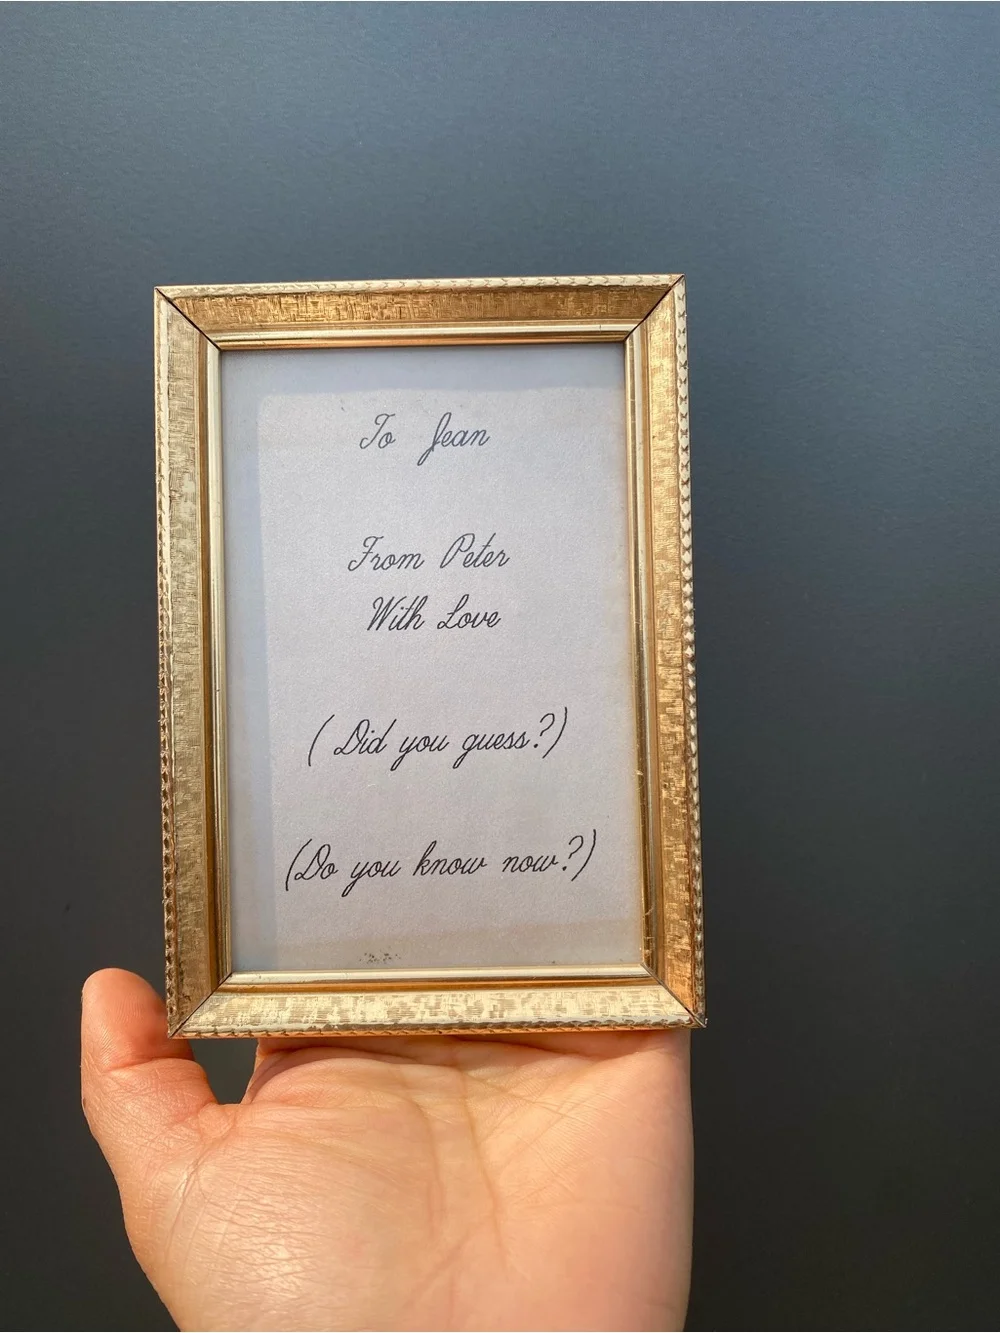 To Jean
From Peter
With Love
( Did you guess?)
(Do you know now?)